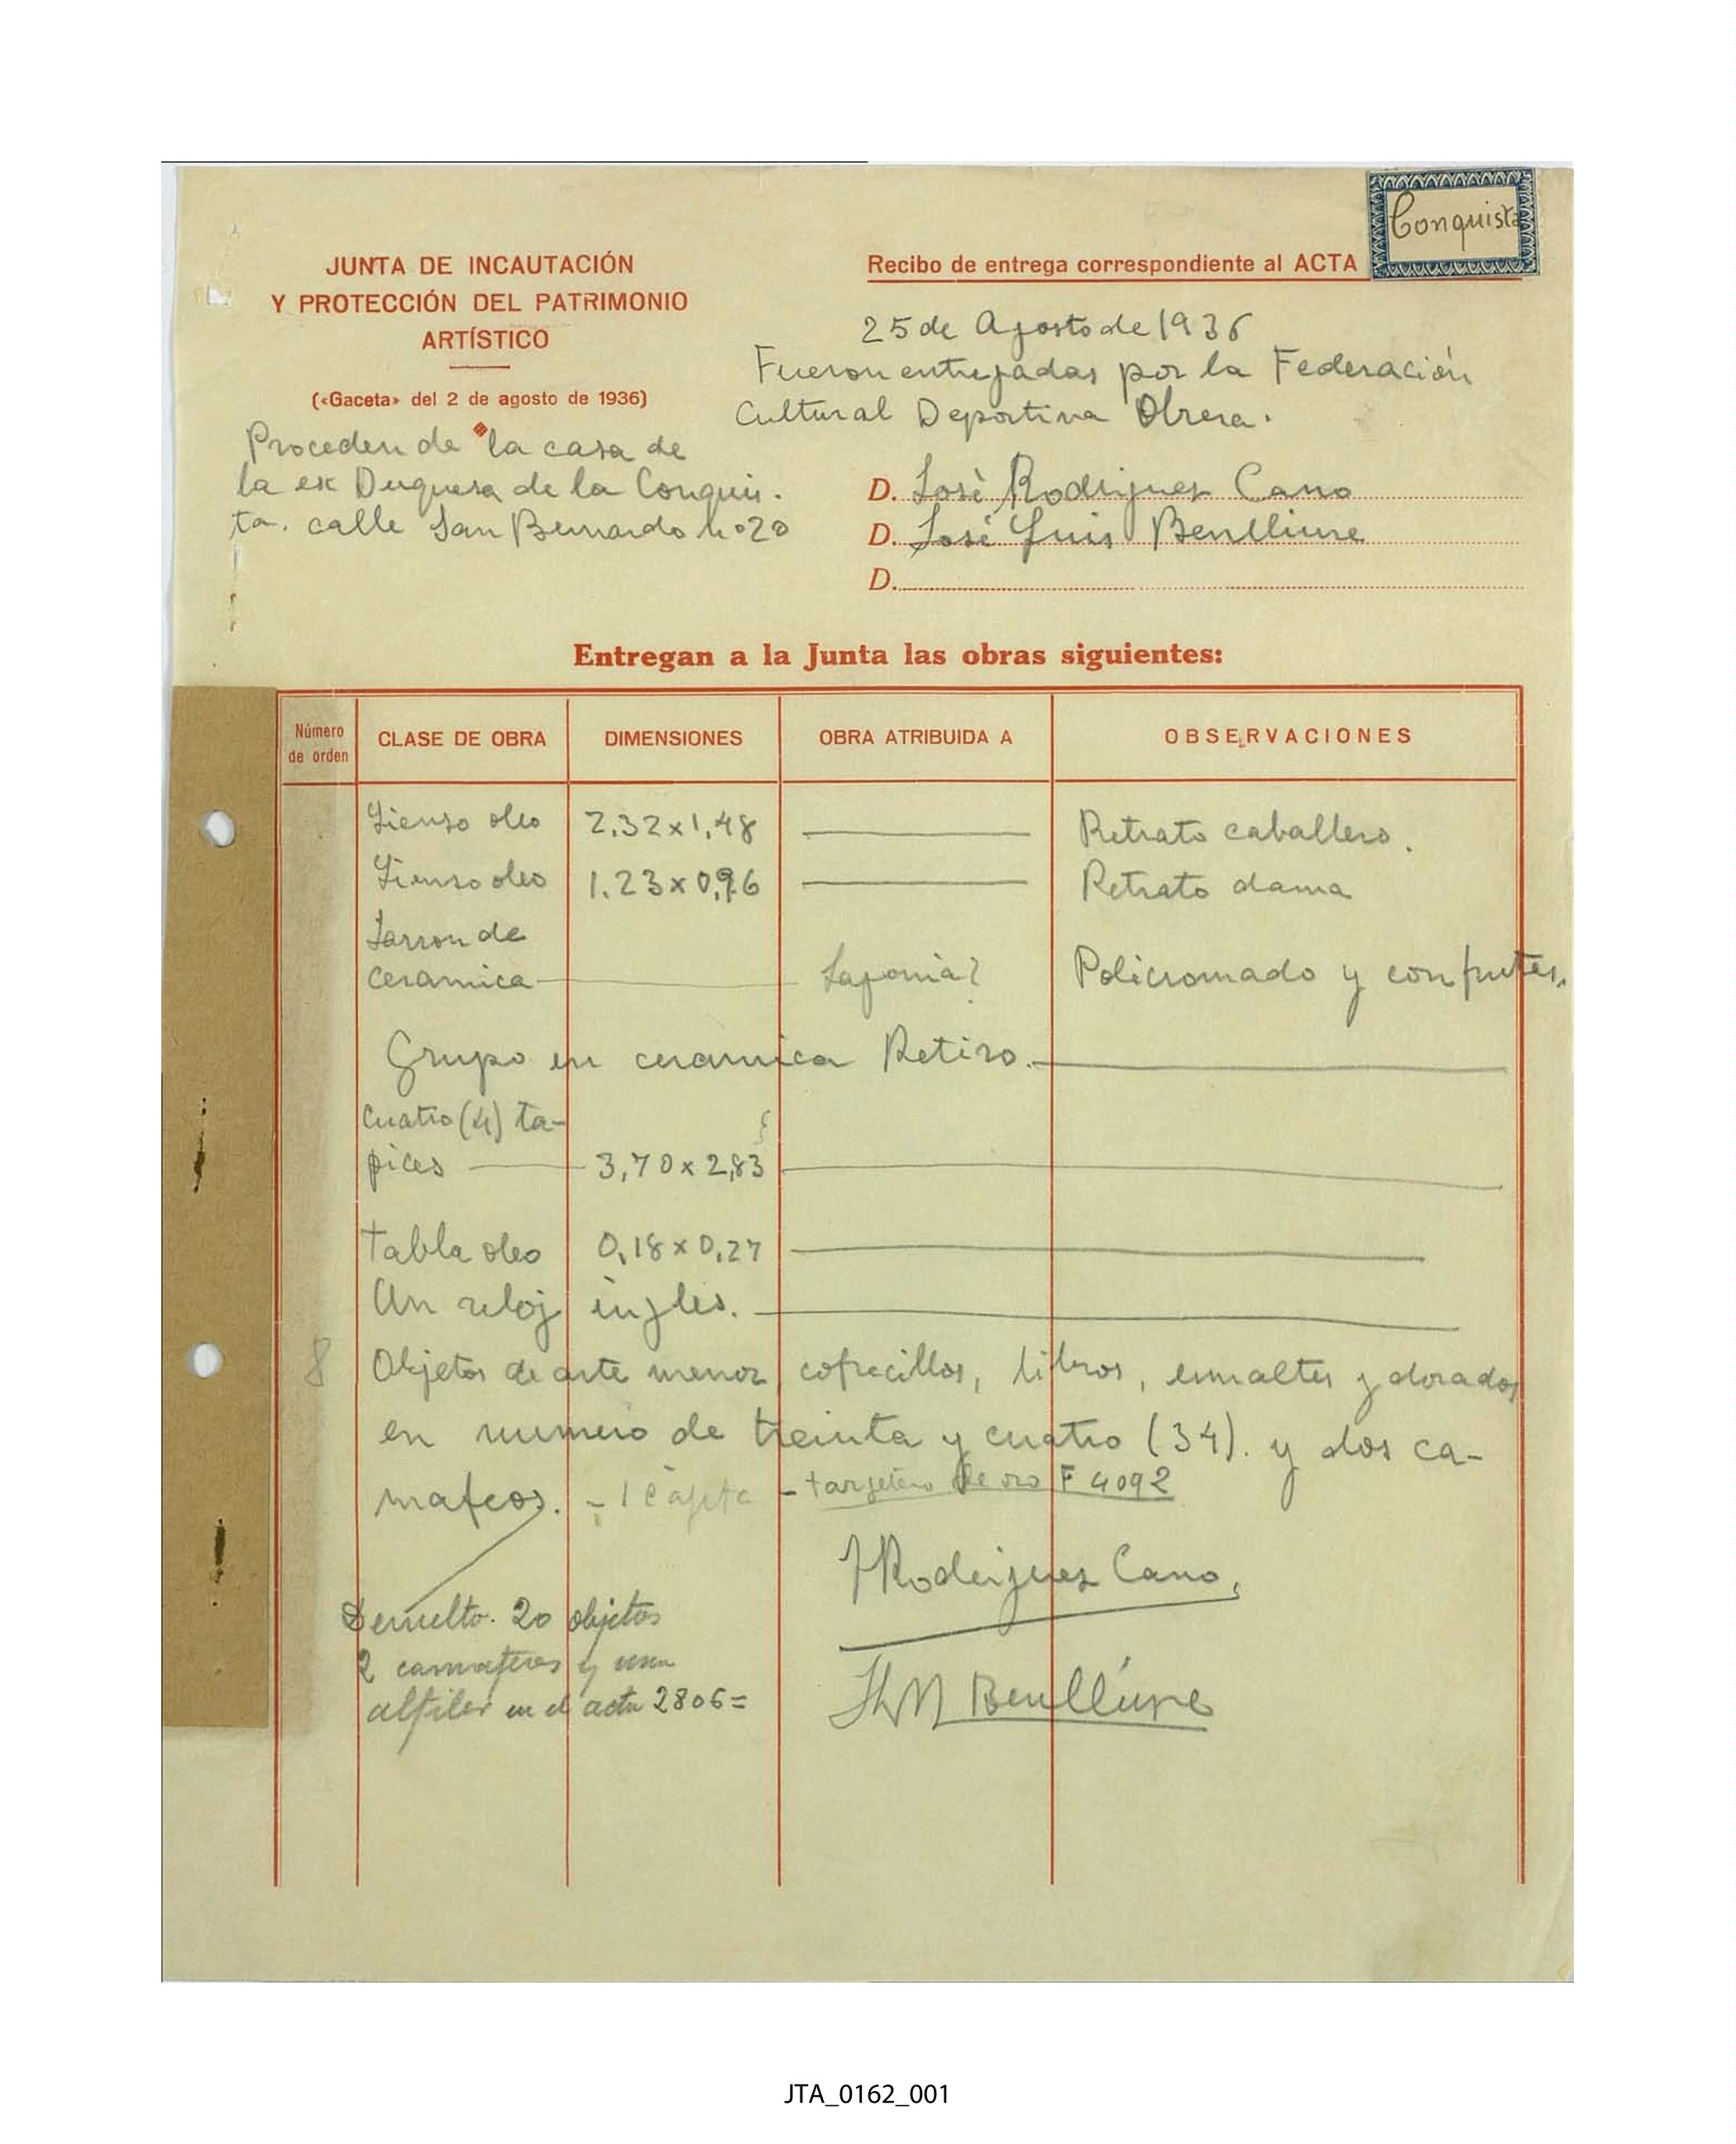 Conquista
JUNTA DE INCAUTACIÓN
Y PROTECCIÓN DEL PATRIMONIO
ARTÍSTICO
(«Gaceta» del 2 de agosto de 1936)
Proceden de la casa de
la ex Duquesa de la Conquis-
ta. calle San Bernardo nº 20
Recibo de entrega correspondiente al ACTA
25 de Agosto de 1936
Fueron entregadas por la Federación
Cultural Deportiva Obrera.
D. José Rodriguez Cano
D. José Luis Benlliure
D.
Entregan a la Junta las obras siguientes:
Número de orden CLASE DE OBRA DIMENSIONES OBRA ATRIBUIDA A OBSERVACIONES
Lienso oleo 2,32 x 1,48 Retrato caballero.
Lienso oleo 1.23 x 0,96 Retrato dama
Jarron de
ceramica Japonia? Policromado y con frutes.
Grupo en ceramica Retiro.
Cuatro (4) ta-
pices 3,70 x 2,83
Tabla oleo 0,18 x 0,27
Un reloj ingles.
8 Objetos de arte menor, cofrecillos, libros, esmaltes y dorados
en numero de treinta y cuatro (34). y dos ca-
mafeos. - 1 Cajita - tarjetero de oro F 4092
JRodriguez Cano,
Devuelto. 20 objetos
2 camafeos y un
alfiler en el acta 2806=
JLM Benlliure
JTA_0162_001